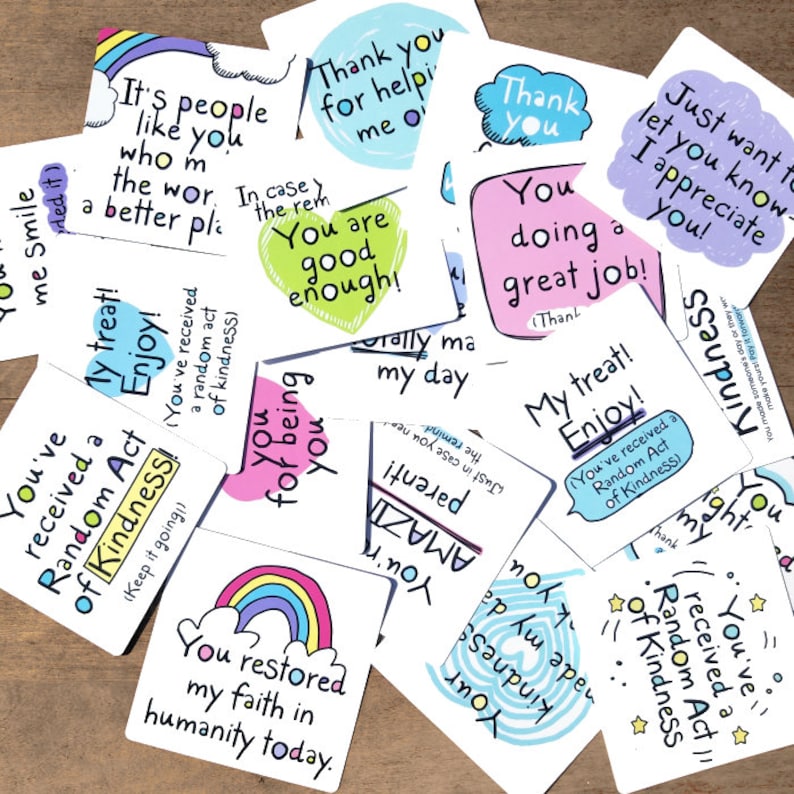 It's people
like you
who m
the wor
a better pl
Thank you
for helpi
me o
Thank
you
Just want to
let you know
I appreciate
you!
me Smile
In case y
the rem
You are
good
enough!
You
doing a
great job!
(Thank
My treat!
Enjoy!
(You've received
a random act
of kindness)
otally ma
my day
My treat!
Enjoy!
(You've received a
Random Act
of Kindness)
Kindness
you made someone's day or they
make yours! Pay it forward
You've
received a
Random Act
of Kindness!
(Keep it going!)
you
for being
you
You're
AMAZI
parent!
(Just in case you need
the remind
ight
my
Thank
Your
kindness
made my da
Thank you
You restored
my faith in
humanity today.
You've
received a
Random Act
of Kindness